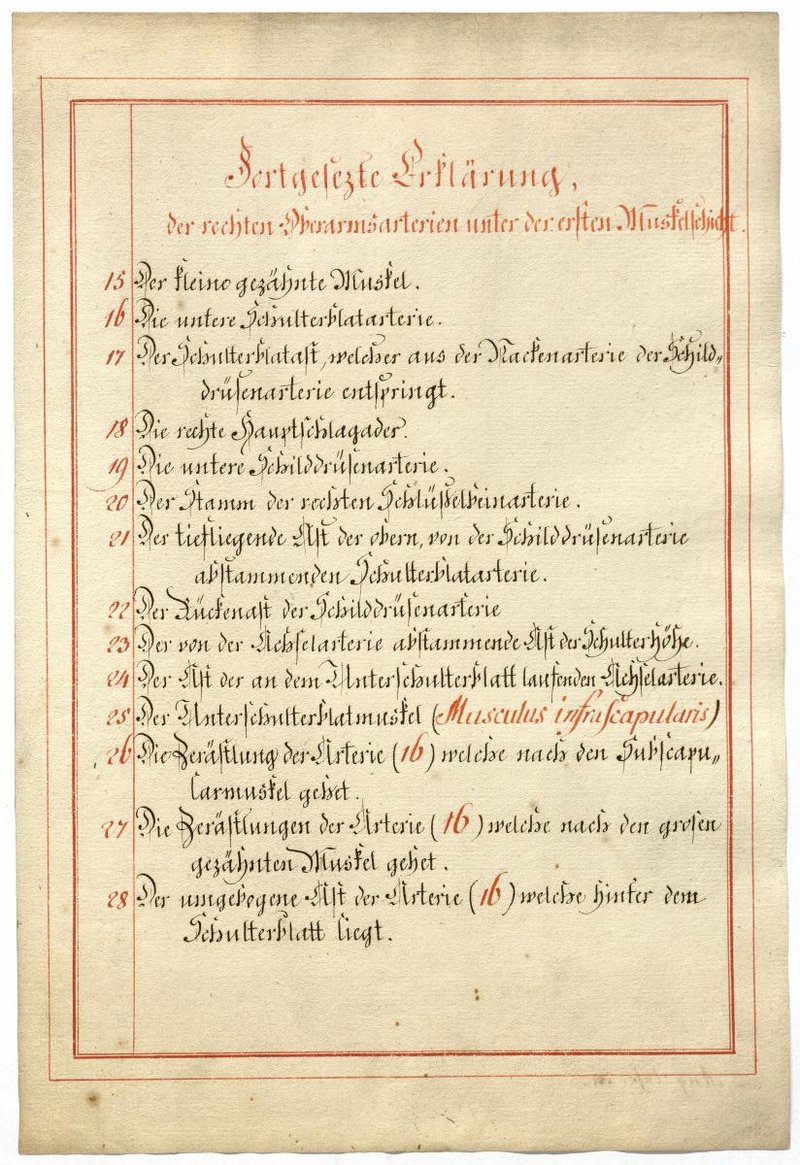 Fortgesezte Erklärung,
der rechten Oberarmsarterien unter der ersten Muskelschicht.
15 Der kleine gezähnte Muskel.
16 Die untere Schulterblatarterie.
17 Der Schulterblatast, welcher aus der Nackenarterie der Schild„
drüsenarterie entspringt.
18 Die rechte Hauptschlagader.
19 Die untere Schilddrüsenarterie.
20 Der Stamm der rechten Schlüßelbeinarterie.
21 Der tiefliegende Ast der obern, von der Schilddrüsenarterie
abstammenden Schulterblatarterie.
22 Der Rückenast der Schilddrüsenarterie
23 Der von der Achselarterie abstammende Ast der Schulterhöhe.
24 Der Ast der an dem Unterschulterblatt laufenden Achselarterie.
25 Der Unterschulterblatmuskel (Musculus infrascapularis)
26 Die Zerästlung der Arterie (16) welche nach den Subscapu„
larmuskel gehet.
27 Die Zerästlungen der Arterie (16) welche nach den grosen
gezähnten Muskel gehet.
28 Der umgebogene Ast der Arterie (16) welche hinter dem
Schulterblatt liegt.